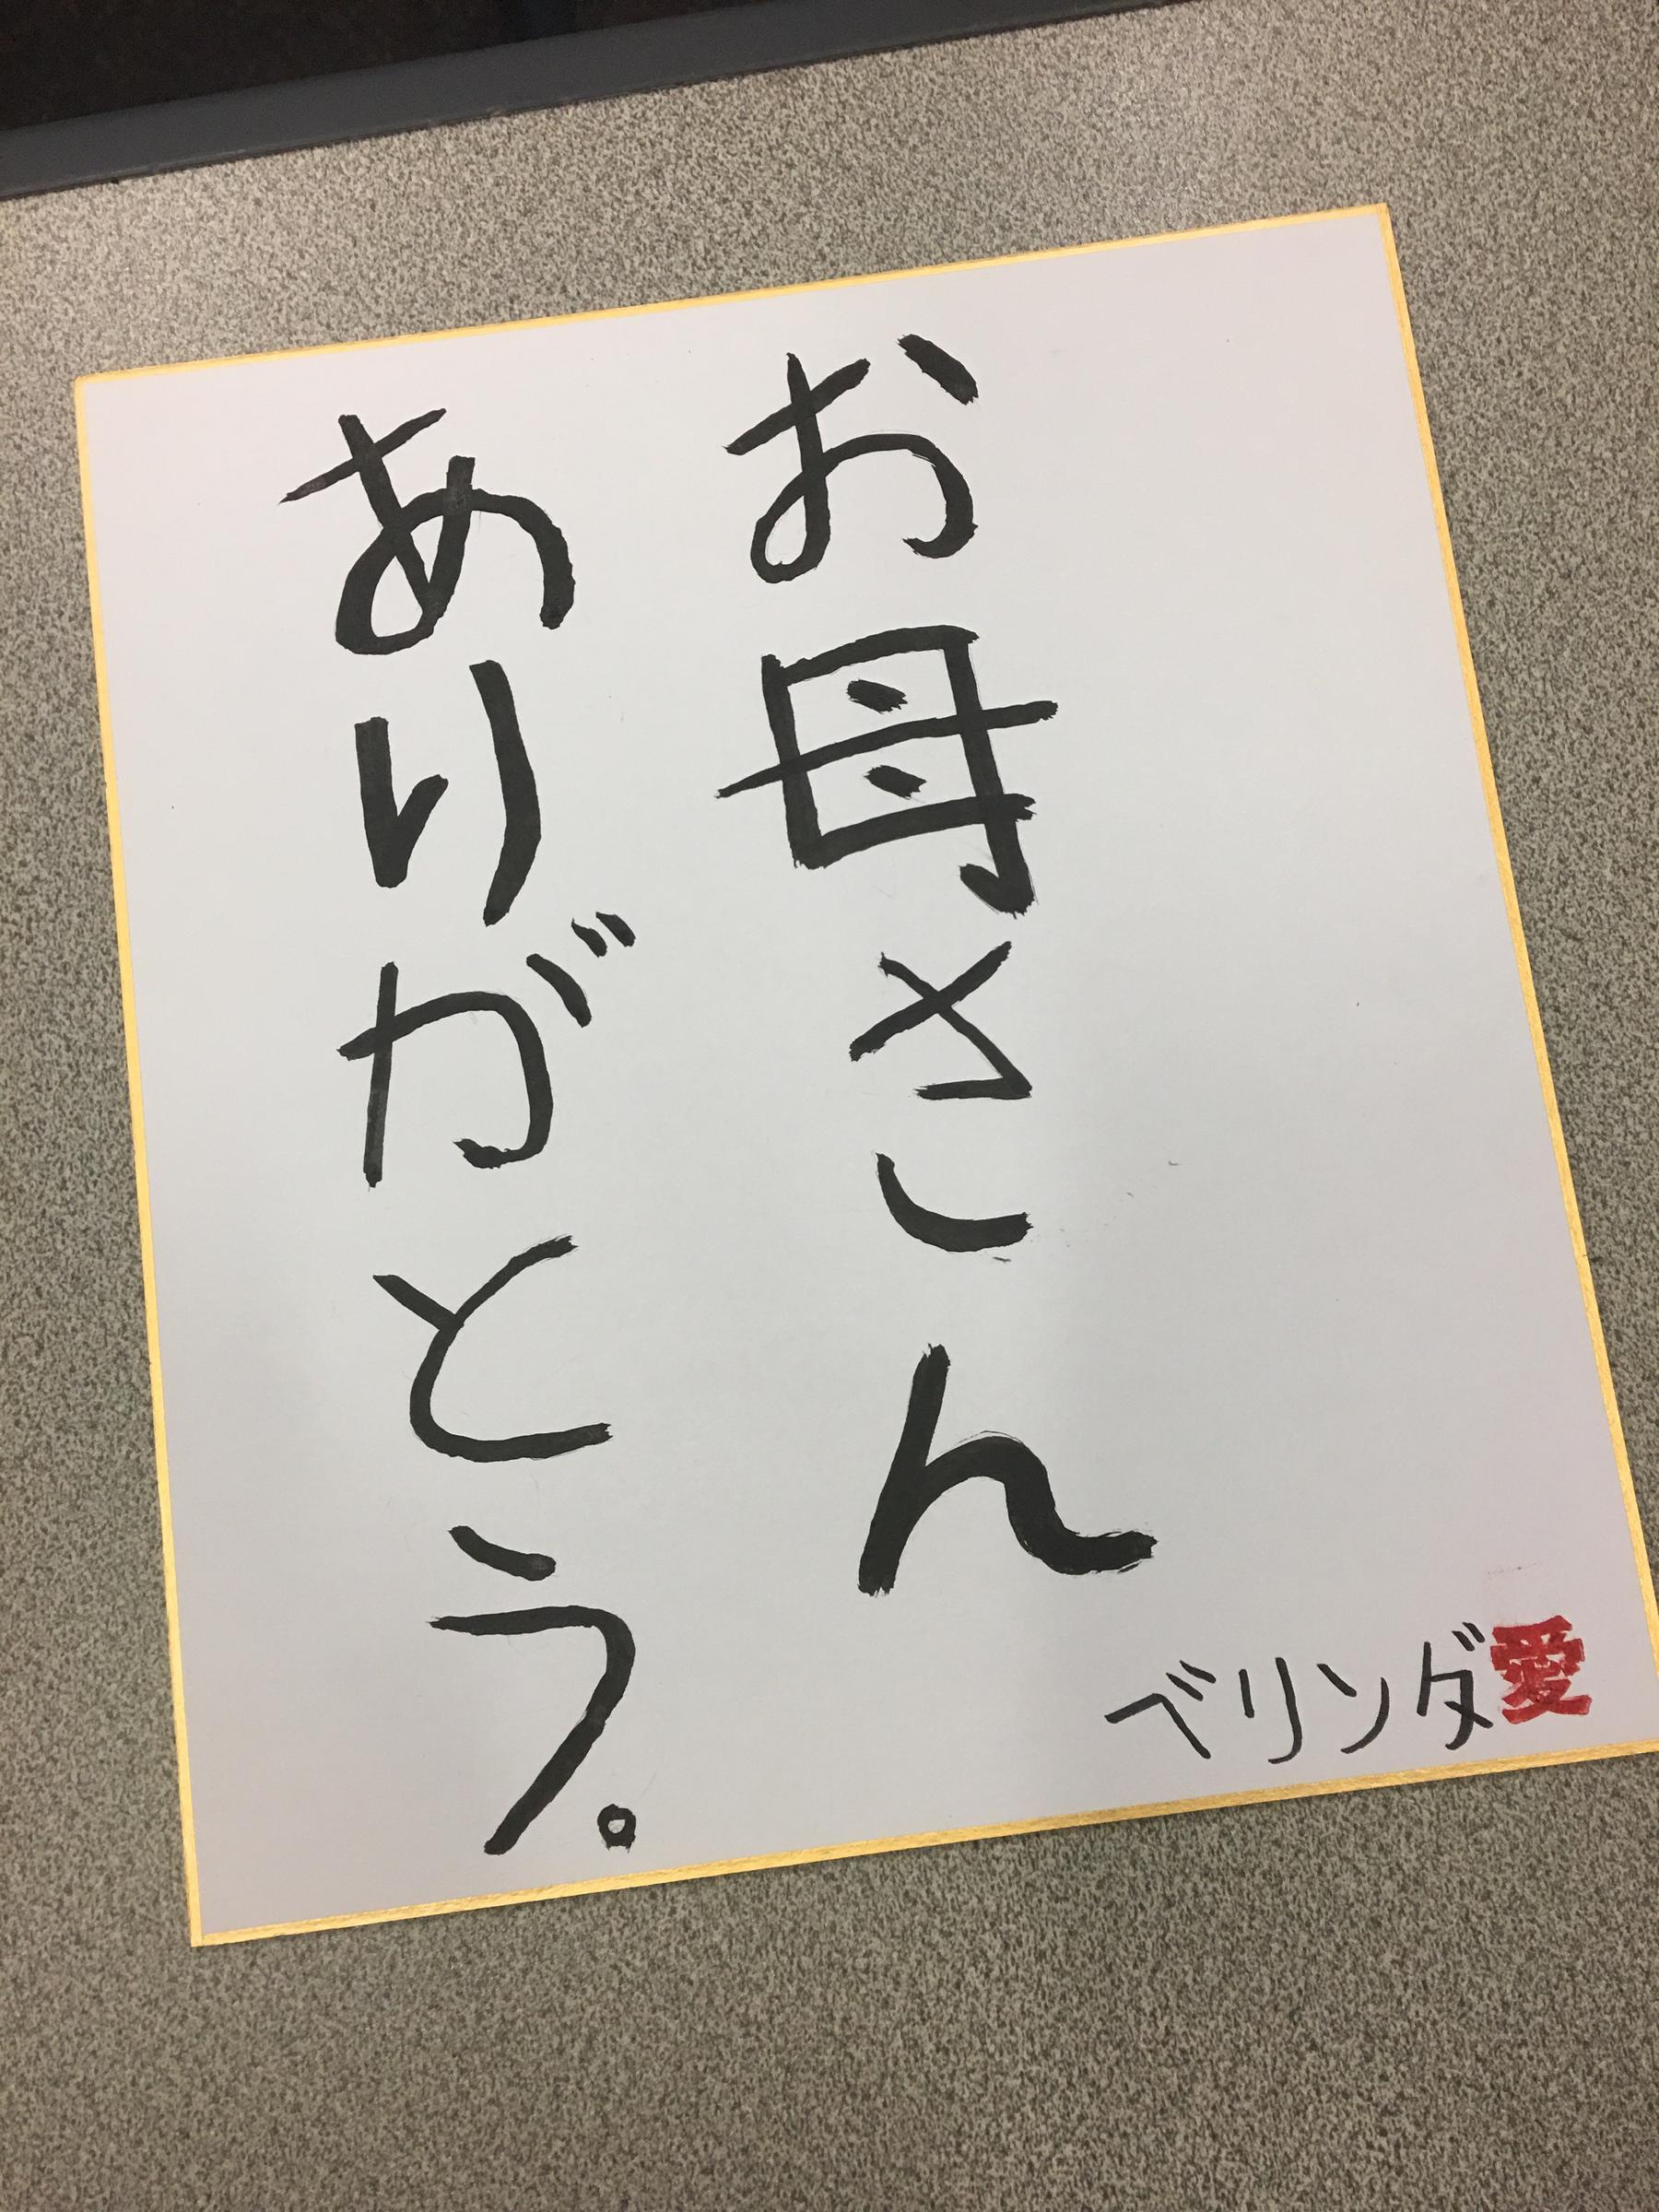 お母さん
ありがとう。
ベリンダ愛